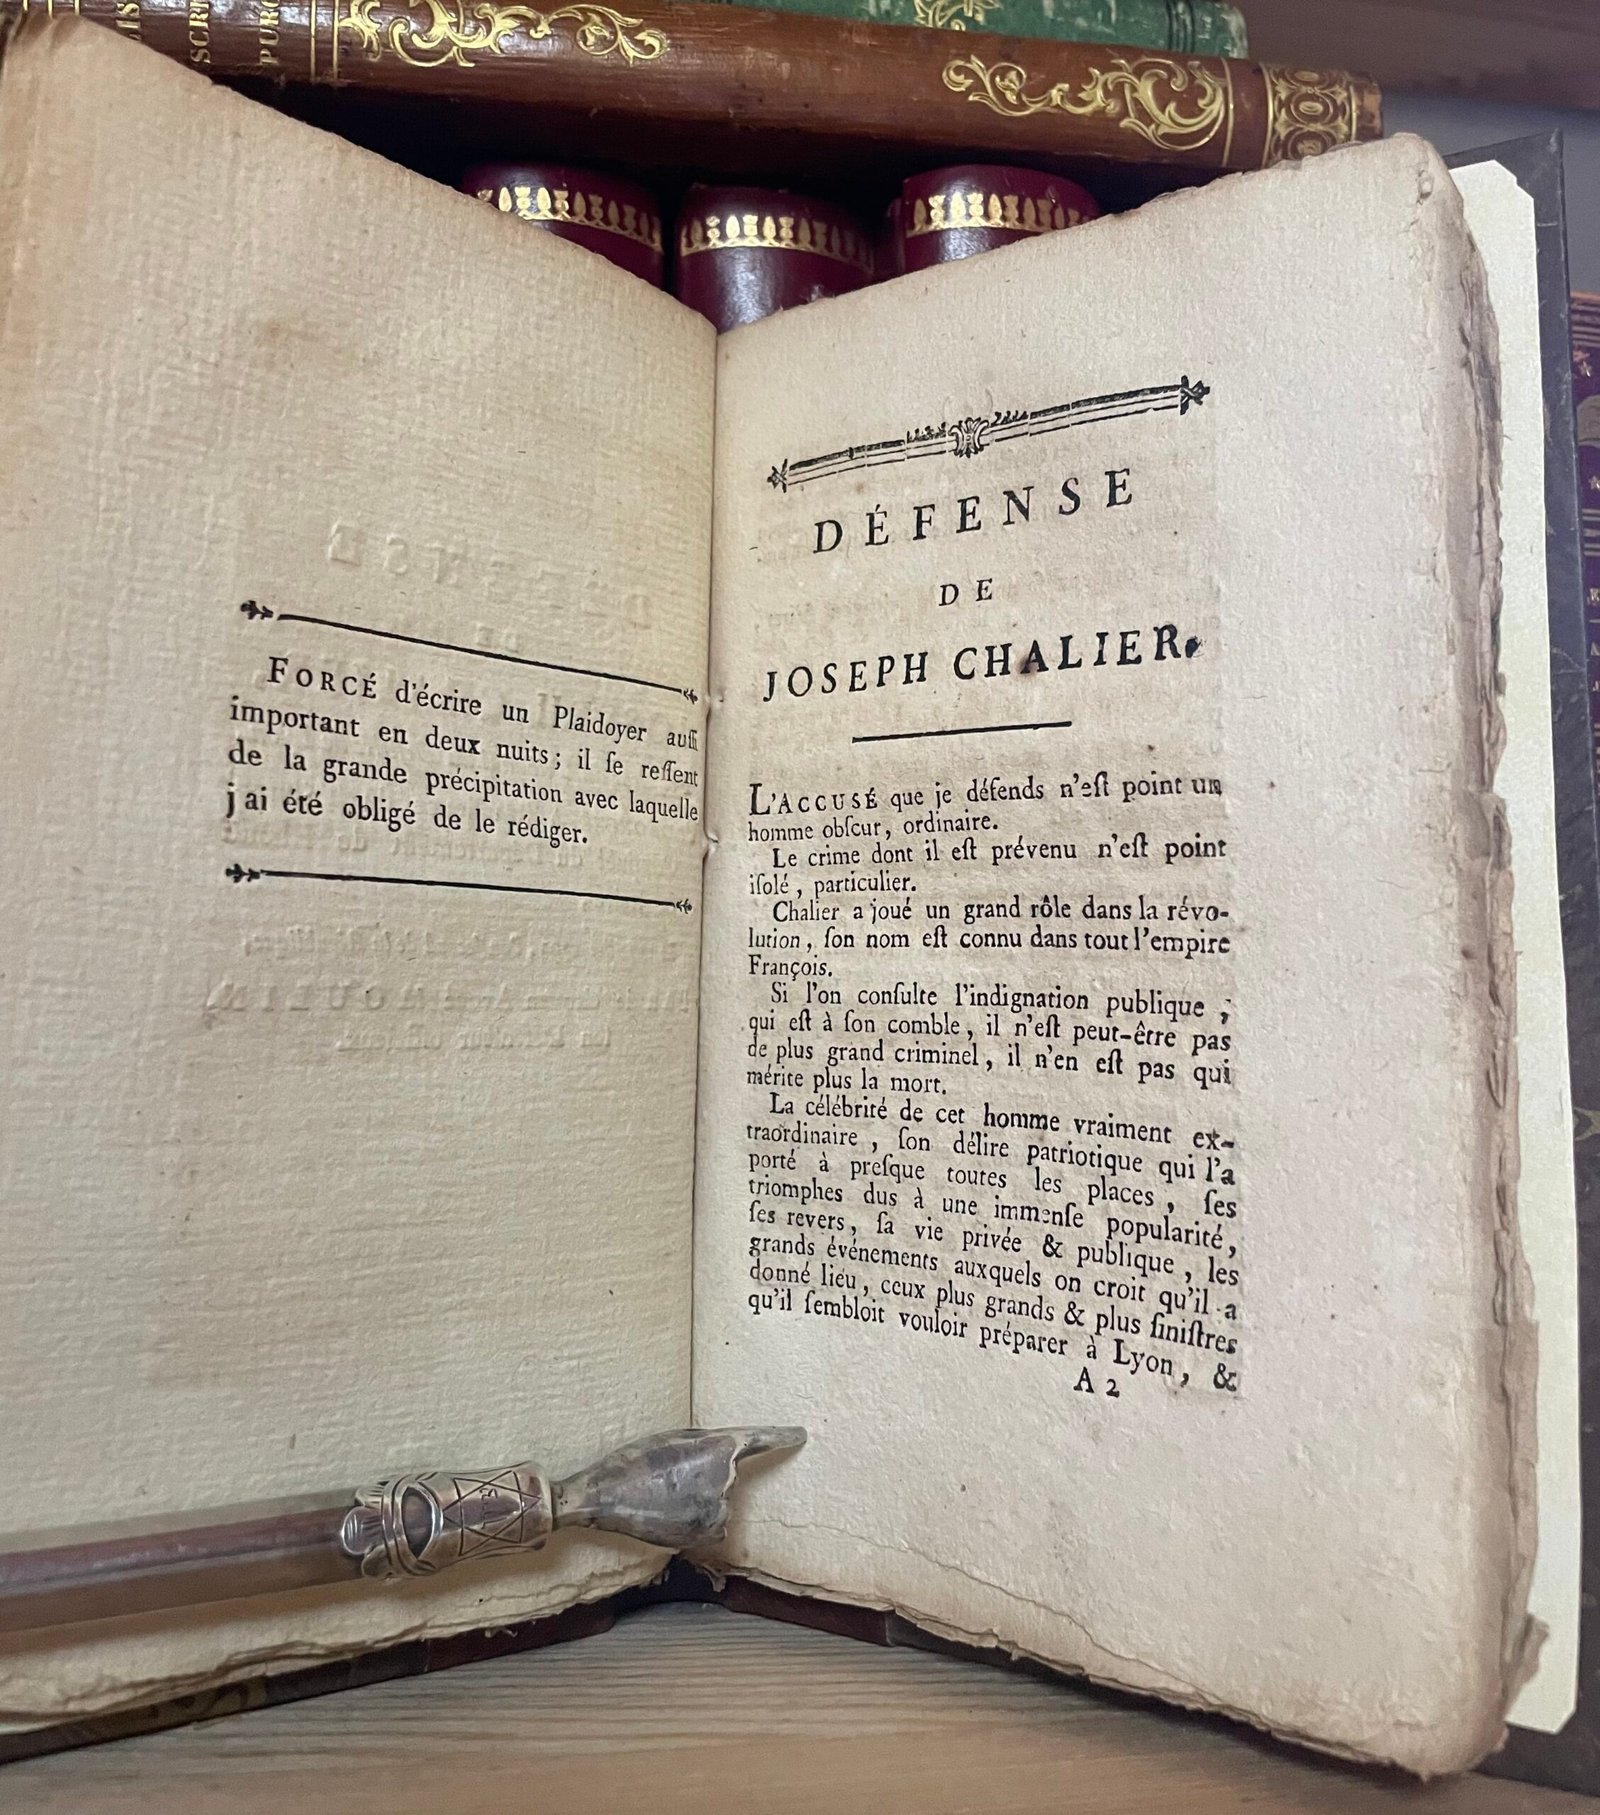 SCRI
PURG
FORCÉ d'écrire un Plaidoyer auſſi
important en deux nuits; il ſe reſſent
de la grande précipitation avec laquelle
j ai été obligé de le rédiger.
DÉFENSE
DE
JOSEPH CHALIER.
L'ACCUSÉ que je défends n'eſt point un
homme obſcur, ordinaire.
Le crime dont il eſt prévenu n'eſt point
iſolé, particulier.
Chalier a joué un grand rôle dans la révo-
lution, ſon nom eſt connu dans tout l'empire
François.
Si l'on conſulte l'indignation publique ;
qui eſt à ſon comble, il n'eſt peut-être pas
de plus grand criminel, il n'en eſt pas qui
mérite plus la mort.
La célébrité de cet homme vraiment ex-
traordinaire, ſon délire patriotique qui l'a
porté à preſque toutes les places, ſes
triomphes dus à une immenſe popularité,
ſes revers, ſa vie privée & publique, les
grands événements auxquels on croit qu'il a
donné lieu, ceux plus grands & plus ſiniſtres
qu'il ſembloit vouloir préparer à Lyon, &
A 2